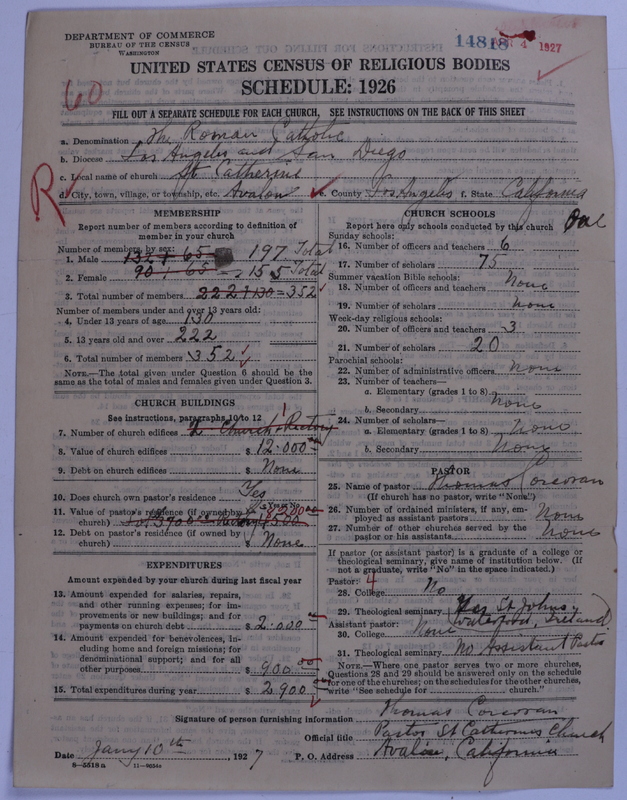 DEPARTMENT OF COMMERCE
BUREAU OF THE CENSUS
WASHINGTON
14818 4 1927
UNITED STATES CENSUS OF RELIGIOUS BODIES
SCHEDULE: 1926
60
FILL OUT A SEPARATE SCHEDULE FOR EACH CHURCH, SEE INSTRUCTIONS ON THE BACK OF THIS SHEET
a. Denomination The Roman Catholic
b. Diocese Los Angeles and San Diego
c. Local name of church St Catherine
R
d. City, town, village, or township, etc. Avalon e. County Los Angeles f. State California
MEMBERSHIP
Report number of members according to definition of
member in your church
Number of members by sex:
1. Male 132 + 65 197 Total
2. Female 90 + 65 = 155 Total
3. Total number of members 222 + 130 = 352
Number of members under and over 13 years old:
4. Under 13 years of age 130
5. 13 years old and over 222
6. Total number of members 352
NOTE.—The total given under Question 6 should be
same as the total of males and females given under Question 3.
CHURCH BUILDINGS
See instructions, paragraphs 10 to 12
7. Number of church edifices 1 Church + Rectory
8. Value of church edifices $ 12.000
9. Debt on church edifices $ None
10. Does church own pastor's residence Yes
11. Value of pastor's residence (if owned by
church) $ 4500
12. Debt on pastor's residence (if owned by
church) $ None
EXPENDITURES
Amount expended by your church during last fiscal year
13. Amount expended for salaries, repairs,
and other running expenses; for im-
provements or new buildings; and for
payments on church debt $ 2.000
14. Amount expended for benevolences, in-
cluding home and foreign missions; for
denominational support; and for all
other purposes $ 900.00
15. Total expenditures during year $ 2.900
CHURCH SCHOOLS
Report here only schools conducted by this church
Sunday schools:
16. Number of officers and teachers 6
17. Number of scholars 75
Summer vacation Bible schools:
18. Number of officers and teachers None
19. Number of scholars None
Week-day religious schools:
20. Number of officers and teachers 3
21. Number of scholars 20
Parochial schools:
22. Number of administrative officers None
23. Number of teachers—
a. Elementary (grades 1 to 8) None
b. Secondary None
24. Number of scholars—
a. Elementary (grades 1 to 8) None
b. Secondary None
PASTOR
25. Name of pastor Thomas Corcoran
(If church has no pastor, write "None")
26. Number of ordained ministers, if any, em-
ployed as assistant pastors None
27. Number of other churches served by the
pastor or his assistants None
If pastor (or assistant pastor) is a graduate of a college or
theological seminary, give name of institution below. (If
not a graduate, write "No" in the space indicated.)
Pastor: 4
28. College No
29. Theological seminary Yes St Johns,
Waterford, Ireland
Assistant pastor:
30. College None
31. Theological seminary No Assistant Pastor
NOTE.—Where one pastor serves two or more churches,
Questions 28 and 29 should be answered only on the schedule
for one of the churches; on the schedules for the other churches,
write "See schedule for church."
Signature of person furnishing information Thomas Corcoran
Official title Pastor St Catherines Church
Date Jany 10th, 1927 P. O. Address Avalon, California
8—5518a 11—9654a